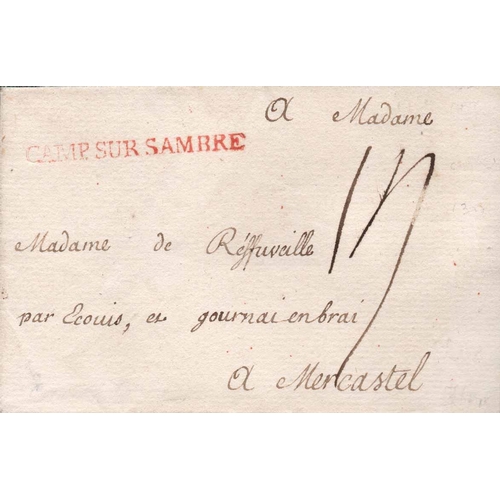 A Madame
CAMP. SUR SAMBRE
Madame de Réffuveille
par Ecouis, et gournai en brai
A Mercastel